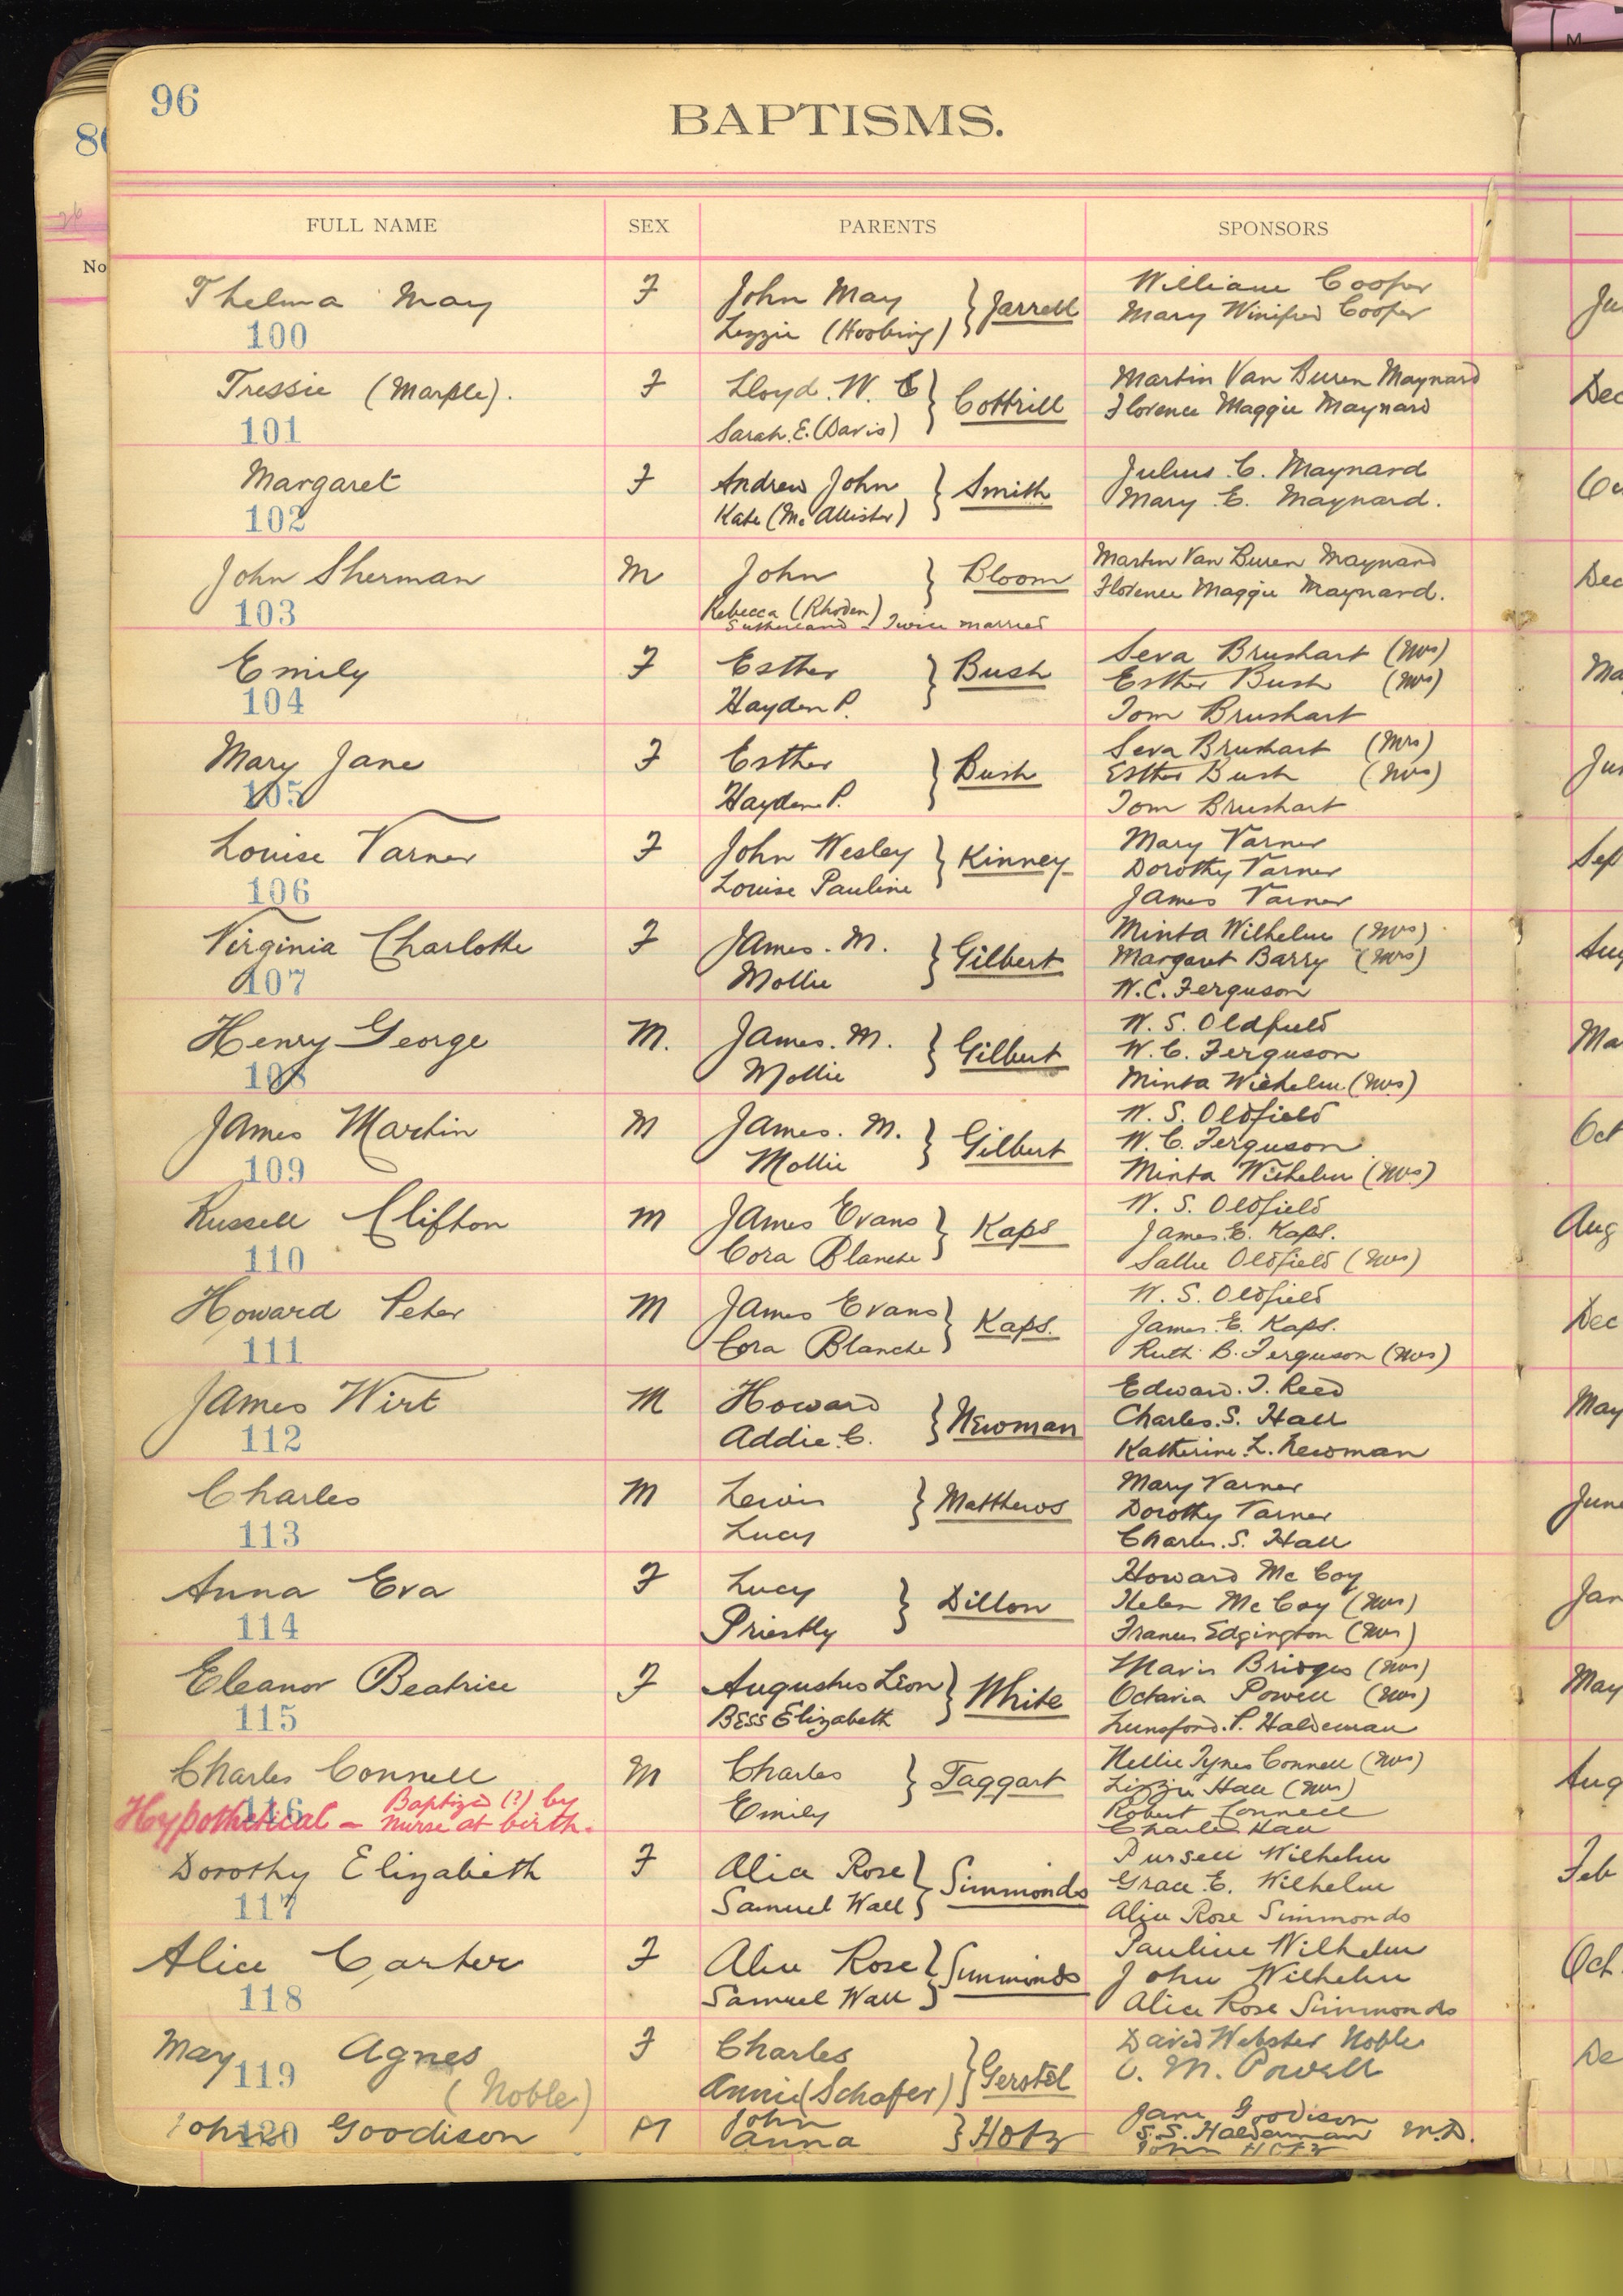 96
BAPTISMS.
FULL NAME SEX PARENTS SPONSORS
Thelma May F John May } Jarrell William Cooper
100 Lizzie (Hosbing) Mary Winifred Cooper
Tressie (Marple). F Lloyd. W. C } Cottrill Martin Van Buren Maynard
101 Sarah. E. (Davis) Florence Maggie Maynard
Margaret F Andrew John } Smith Julius C. Maynard
102 Kate (McAllister) Mary E. Maynard.
John Sherman M John } Bloom Martin Van Buren Maynard
103 Rebecca (Rhoden) Florence Maggie Maynard.
Sutherland - Twice married
Emily F Esther } Bush Seva Brushart (Mrs)
104 Hayden P. Esther Bush (Mrs)
Tom Brushart
Mary Jane F Esther } Bush Seva Brushart (Mrs)
105 Hayden P. Esther Bush (Mrs)
Tom Brushart
Louise Varner F John Wesley } Kinney Mary Varner
106 Louise Pauline Dorothy Varner
James Varner
Virginia Charlotte F James. M. } Gilbert Minta Wilhelm (Mrs)
107 Mollie Margaret Barry (Mrs)
W. C. Ferguson
Henry George M. James. M. } Gilbert W. S. Oldfield
108 Mollie W. C. Ferguson
Minta Wilhelm (Mrs)
James Martin M James. M. } Gilbert W. S. Oldfield
109 Mollie W. C. Ferguson
Minta Wilhelm (Mrs)
Russell Clifton M James Evans } Kaps W. S. Oldfield
110 Cora Blanche James. E. Kaps.
Sallie Oldfield (Mrs)
Howard Peter M James Evans } Kaps. W. S. Oldfield
111 Cora Blanche James. E. Kaps.
Ruth B. Ferguson (Mrs)
James Wirt M Howard } Newman Edward. T. Reed
112 Addie. C. Charles. S. Hall
Katherine. L. Newman
Charles M Lewis } Matthews Mary Varner
113 Lucy Dorothy Varner
Charles. S. Hall
Anna Eva F Lucy } Dillon Howard McCoy
114 Priestly Helen McCoy (Mrs)
Frances Edgington (Mrs)
Eleanor Beatrice F Augustus Leon } White Mavis Bridges (Mrs)
115 Bess Elizabeth Octavia Powell (Mrs)
Lunsford. P. Haldeman
Charles Connell M Charles } Taggart Nellie Tynes Connell (Mrs)
116 Emily Lizzie Hall (Mrs)
Hypothetical - Baptized (?) by nurse at birth. Robert Connell
Charles Hall
Dorothy Elizabeth F Alice Rose } Simmonds Pursell Wilhelm
117 Samuel Wall Grace. E. Wilhelm
Alice Rose Simmonds
Alice Carter F Alice Rose } Simmonds Pauline Wilhelm
118 Samuel Wall John Wilhelm
Alice Rose Simmonds
May Agnes F Charles } Gerstel David Webster Noble
119 (Noble) Annie (Schafer) O. M. Powell
John Goodison M John } Hotz Jane Goodison
120 Anna S. S. Halderman M.D.
John Hotz
86
No
M
Dec
Oct
Aug
Dec
May
June
Jan
May
Aug
Feb
Oct.
De